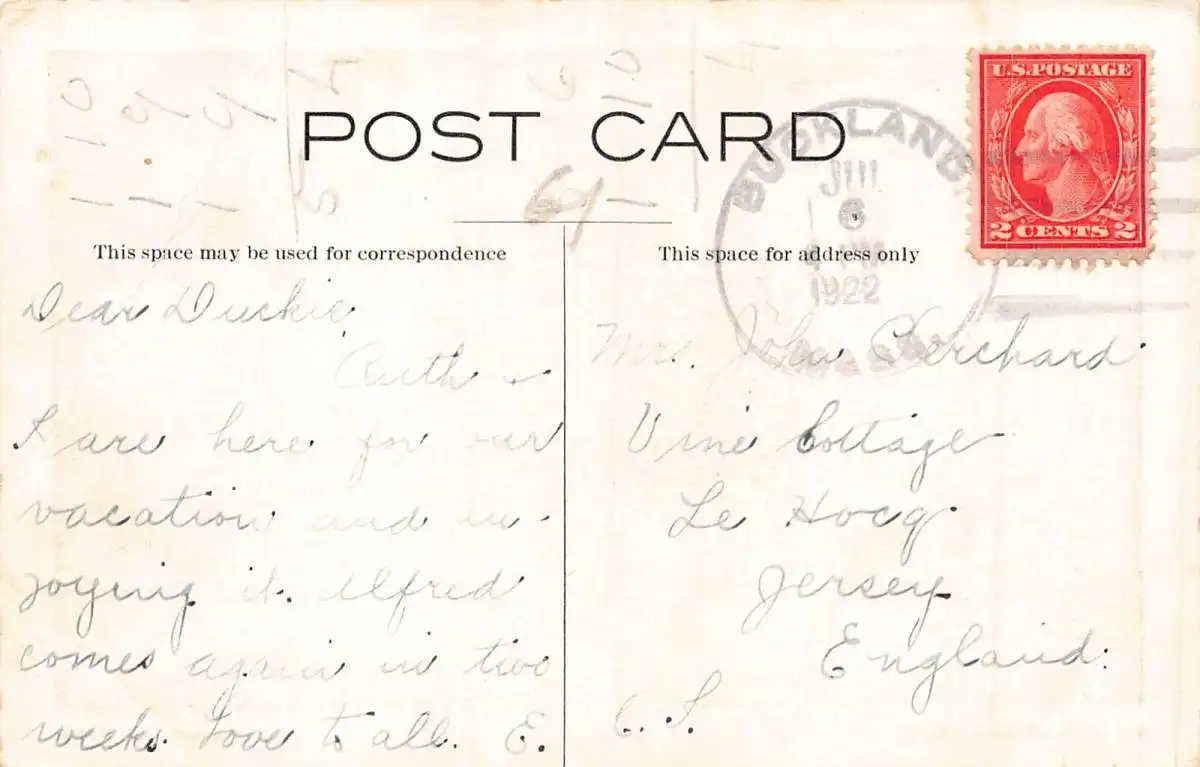 POST CARD
U.S.POSTAGE
2 CENTS 2
BUCKLAND
6
1922
This space may be used for correspondence
This space for address only
Dear Duckie,
Ruth &
I are here for our
vacation and in-
joying it. Alfred
comes again in two
weeks. Love to all. E.
Mrs. John Perchard
Vine Cottage
Le Hocq
Jersey
England.
C. I.